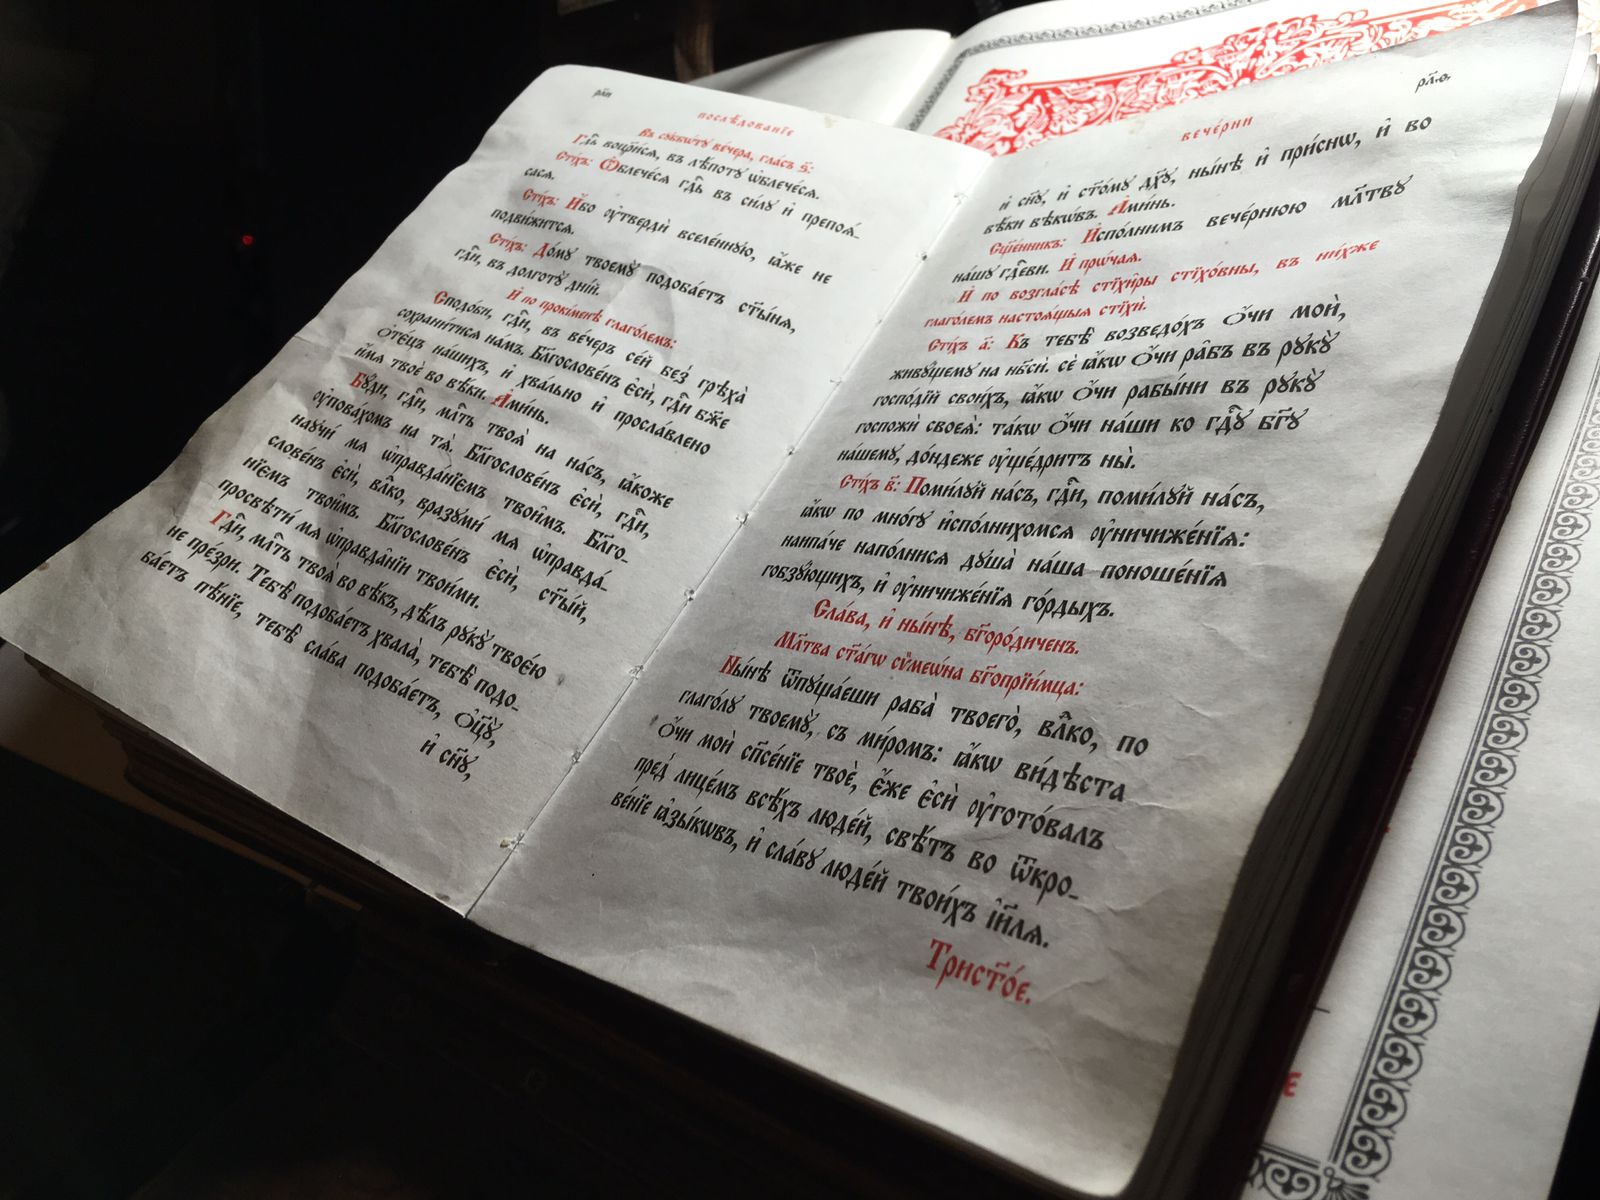 рл҃и
послѣ́дованїе
Въ сꙋббѡ́тꙋ ве́чера, гла́съ ѕ҃:
Гдⷭ҇ь воцр҃и́сѧ, въ лѣ́потꙋ ѡ҆блече́сѧ.
Сті́хъ: Ѡ҆блече́сѧ гдⷭ҇ь въ си́лꙋ и҆ препоѧ́-
сасѧ.
Сті́хъ: И҆́бо ᲂу҆твердѝ вселе́ннꙋю, ꙗ҆́же не
подви́житсѧ.
Сті́хъ: До́мꙋ твоемꙋ̀ подоба́етъ ст҃ы́нѧ,
гдⷭ҇и, въ долготꙋ̀ дні́й.
И҆ по прокі́менѣ глаго́лемъ:
Сподо́би, гдⷭ҇и, въ ве́черъ се́й без̾ грѣха̀
сохрани́тисѧ на́мъ. Бл҃гослове́нъ є҆сѝ, гдⷭ҇и бж҃е
ѻ҆тє́цъ на́шихъ, и҆ хва́льно и҆ просла́влено
и҆́мѧ твоѐ во вѣ́ки. А҆ми́нь.
Бꙋ́ди, гдⷭ҇и, млⷭ҇ть твоѧ̀ на на́съ, ꙗ҆́коже
ᲂу҆пова́хомъ на тѧ̀. Бл҃гослове́нъ є҆сѝ, гдⷭ҇и,
наꙋчи́ мѧ ѡ҆правда́нїємъ твои̑мъ. Бл҃го-
слове́нъ є҆сѝ, влⷣко, вразꙋми́ мѧ ѡ҆правда́-
нїємъ твои̑мъ. Бл҃гослове́нъ є҆сѝ, ст҃ы́й,
просвѣти́ мѧ ѡ҆правда́нїи твои́ми.
Гдⷭ҇и, млⷭ҇ть твоѧ̀ во вѣ́къ, дѣ́лъ рꙋкꙋ̀ твоє́ю
не пре́зри. Тебѣ̀ подоба́етъ хвала̀, тебѣ̀ подо-
ба́етъ пѣ́нїе, тебѣ̀ сла́ва подоба́етъ, ѻ҆ц҃ꙋ̀,
и҆ сн҃ꙋ,
рл҃ѳ.
вече́рни
и҆ сн҃ꙋ, и҆ ст҃о́мꙋ дх҃ꙋ, ны́нѣ и҆ при́снѡ, и҆ во
вѣ́ки вѣкѡ́въ. А҆ми́нь.
Сщ҃е́нникъ: И҆спо́лнимъ вече́рнюю мл҃твꙋ
на́шꙋ гдⷭ҇еви. И҆ прѡ́чаѧ.
И҆ по во́згласѣ стїхи̑ры стїхо́вны, въ ни́хже
глаго́лемъ настоѧ́щыѧ стїхѝ.
Сті́хъ а҃: Къ тебѣ̀ возведо́хъ ѻ҆́чи моѝ,
живꙋ́щемꙋ на нб҃сѝ. сѐ ꙗ҆́кѡ ѻ҆́чи ра̑бъ въ рꙋкꙋ̀
госпо́дїй свои́хъ, ꙗ҆́кѡ ѻ҆́чи рабы́ни въ рꙋкꙋ̀
госпожѝ своеѧ̀: та́кѡ ѻ҆́чи на́ши ко гдⷭ҇ꙋ бг҃ꙋ
на́шемꙋ, до́ндеже ᲂу҆ще́дритъ ны̀.
Сті́хъ в҃: Поми́лꙋй на́съ, гдⷭ҇и, поми́лꙋй на́съ,
ꙗ҆́кѡ по мно́гꙋ и҆спо́лнихомсѧ ᲂу҆ничиже́нїѧ:
наипа́че напо́лнисѧ дꙋша̀ на́ша поноше́нїѧ
гобзꙋ́ющихъ, и҆ ᲂу҆ничиже́нїѧ го́рдыхъ.
Сла́ва, и҆ ны́нѣ, бг҃оро́диченъ.
Мл҃тва ст҃а́гѡ сѷмеѡ́на бг҃опрїи́мца:
Ны́нѣ ѿпꙋща́еши раба̀ твоего̀, влⷣко, по
глаго́лꙋ твоемꙋ̀, съ ми́ромъ: ꙗ҆́кѡ ви́дѣста
ѻ҆́чи моѝ сп҃се́нїе твоѐ, є҆́же є҆сѝ ᲂу҆гото́валъ
пред̾ лице́мъ всѣ́хъ люде́й, свѣ́тъ во ѿкро-
ве́нїе ꙗ҆зы́кѡвъ, и҆ сла́вꙋ люде́й твои́хъ і҆и҃лѧ.
Трист҃о́е.